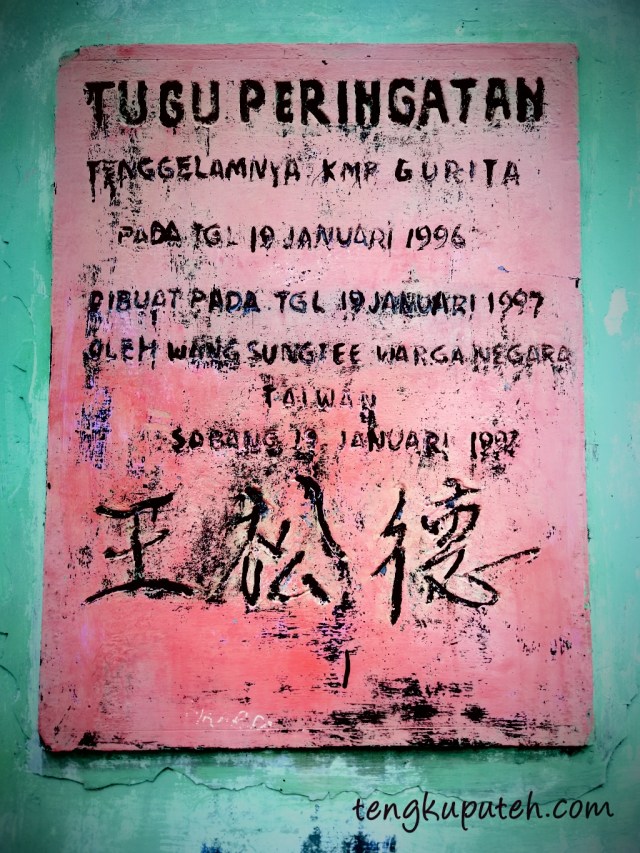 TUGU PERINGATAN
TENGGELAMNYA KMP GURITA
PADA TGL 19 JANUARI 1996
DIBUAT PADA TGL 19 JANUARI 1997
OLEH WANG SUNGTEE WARGA NEGARA
TAIWAN
SABANG 19 JANUARI 1997
王松德
tengkupateh.com